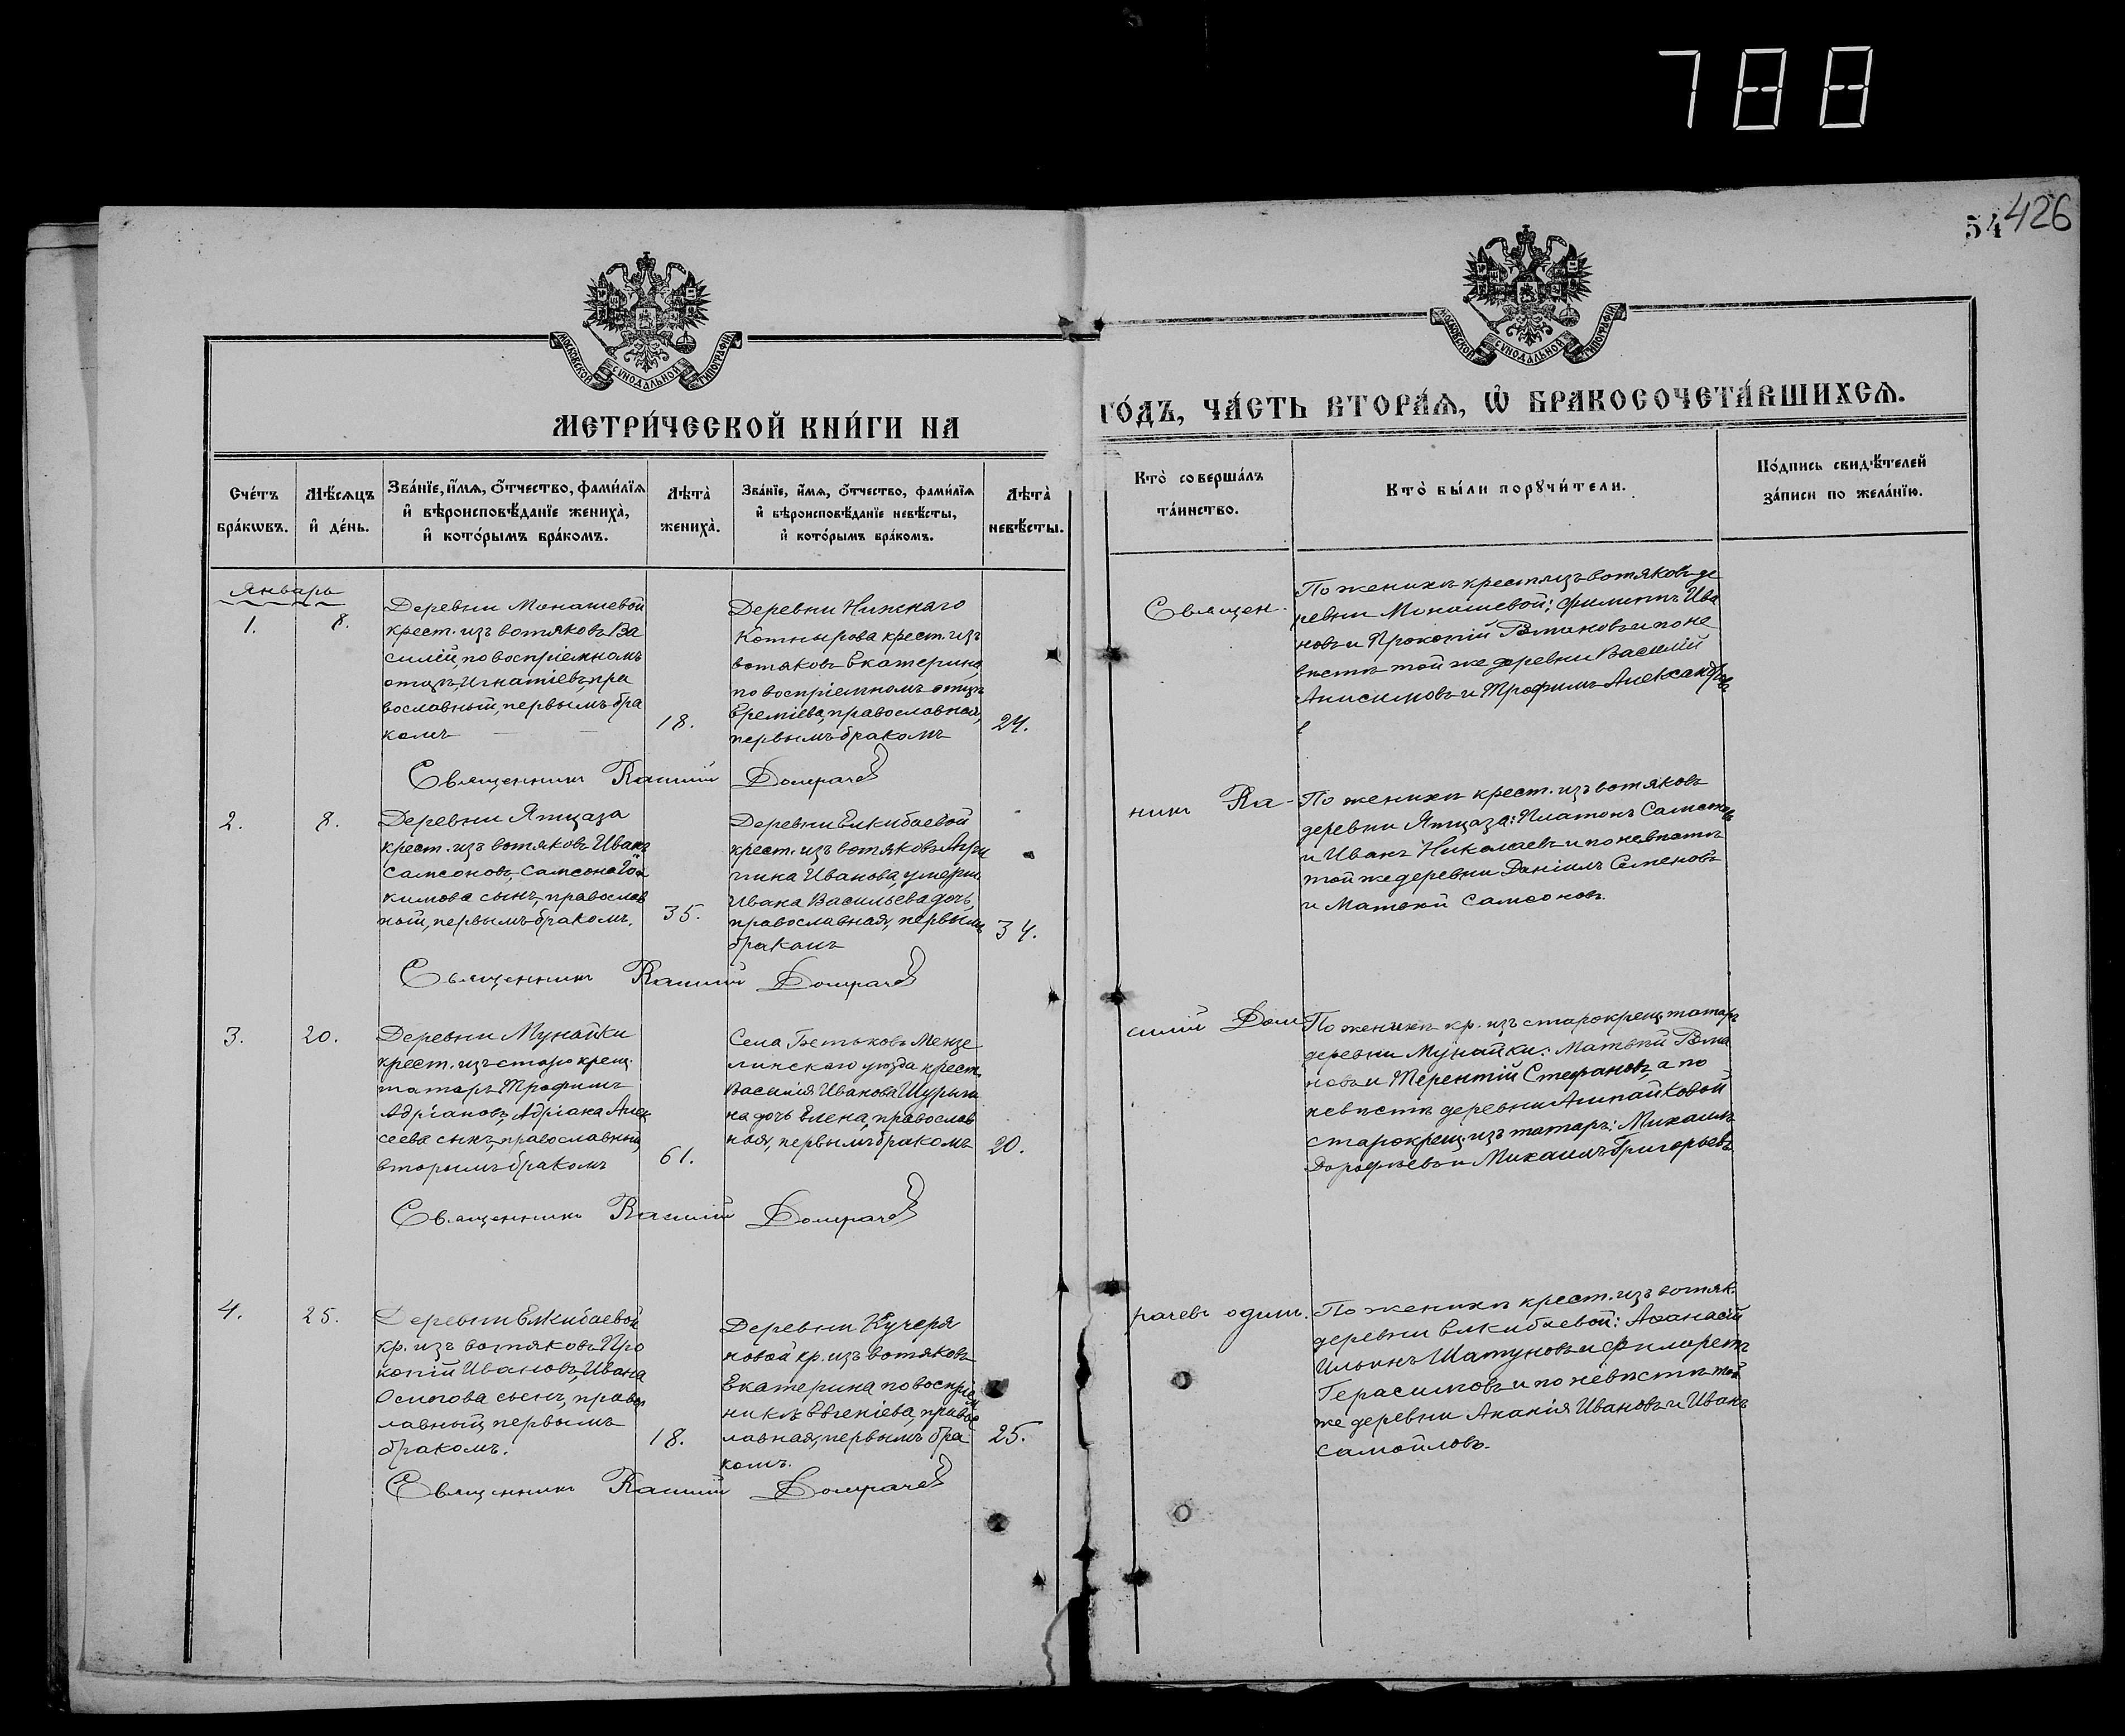 788
54 426
МОСКОВСКОЙ СѴНОДАЛЬНОЙ ТИПОГРАФІИ
МОСКОВСКОЙ СѴНОДАЛЬНОЙ ТИПОГРАФІИ
МЕТРИ́ЧЕСКОЙ КНИ́ГИ НА
ГО́ДЪ, ЧА́СТЬ ВТОРА́Ѧ, Ѡ҆ БРАКОСОЧЕТА́ВШИХСѦ.
Сче́тъ
бра́кѡвъ.
Мѣ́сѧцъ
и҆ де́нь.
Зва́нїе, и҆́мѧ, ѻ҆́тчество, фами́лїѧ
и҆ вѣроисповѣ́данїе жениха̀,
и҆ кото́рымъ бра́комъ.
Лѣта̀
жениха̀.
Зва́нїе, и҆́мѧ, ѻ҆́тчество, фами́лїѧ
и҆ вѣроисповѣ́данїе невѣ́сты,
и҆ кото́рымъ бра́комъ.
Лѣта̀
невѣ́сты.
Кто̀ соверша́лъ
та́инство.
Кто̀ бы́ли порꙋчи́тели.
По́дпись свидѣ́телей
за́писи по жела́нїю.
Январь
1.
8.
Деревни Монашевой
крест. изъ вотяковъ Ва
силій, по воспріемномъ
отцѣ, Игнатіевъ, пра
вославный, первымъ бра
комъ
18.
Деревни Нижняго
Котнырова крест. изъ
вотяковъ Екатерина,
по воспріемномъ отцѣ
Ереміева, православной,
первымъ бракомъ
24.
Священ-
По женихѣ крест. изъ вотяковъ де
ревни Монашевой: Филиппъ Ива
новъ и Прокопій Романовъ и по не
вѣстѣ той же деревни Василій
Анисимовъ и Трофимъ Александровъ
Священникъ Василій Домрачевъ
2.
8.
Деревни Ятцаза
крест. изъ вотяковъ Иванъ
Самсоновъ, Самсона Іоа
кимова сынъ, православ
ный, первымъ бракомъ.
35.
Деревни Елкибаевой
крест. изъ вотяковъ Агри
пина Иванова, умерш.
Ивана Васильева дочь,
православная, первымъ
бракомъ
34.
никъ Ва-
По женихѣ крест. изъ вотяковъ
деревни Ятцаза: Платонъ Самсоновъ
и Иванъ Николаевъ и по невѣстѣ
той же деревни Даніилъ Семеновъ
и Матвѣй Самсоновъ.
Священникъ Василій Домрачевъ
3.
20.
Деревни Мунайки
крест. изъ старокрещ.
татаръ Трофимъ
Адріановъ, Адріана Алек
сеева сынъ, православный,
вторымъ бракомъ
61.
Села Бетьковъ Мензе
линскаго уѣзда крест.
Василія Иванова Шурыги
на дочь Елена, православ
ная, первымъ бракомъ
20.
силій Дом
По женихѣ кр. изъ старокрещ. татаръ
деревни Мунайки: Матвѣй Рома
новъ и Терентій Стефановъ, а по
невѣстѣ деревни Ахпайковой
старокрещ. изъ татаръ: Михаилъ
Дорофѣевъ и Михаилъ Григорьевъ.
Священникъ Василій Домрачевъ
4.
25.
Деревни Елкибаевой
кр. изъ вотяковъ Про
копій Ивановъ, Ивана
Осипова сынъ, правос
лавный, первымъ
бракомъ.
18.
Деревни Кучеря
новой кр. изъ вотяковъ
Екатерина по воспріем
никѣ Евгеніева, правос
лавная, первымъ бра
комъ.
25.
рачевъ одинъ.
По женихѣ крест. изъ вотяк.
деревни Елкибаевой: Аѳанасій
Ильинъ Шатуновъ и Филаретъ
Герасимовъ и по невѣстѣ той
же деревни Ананія Ивановъ и Иванъ
Самойловъ.
Священникъ Василій Домрачевъ